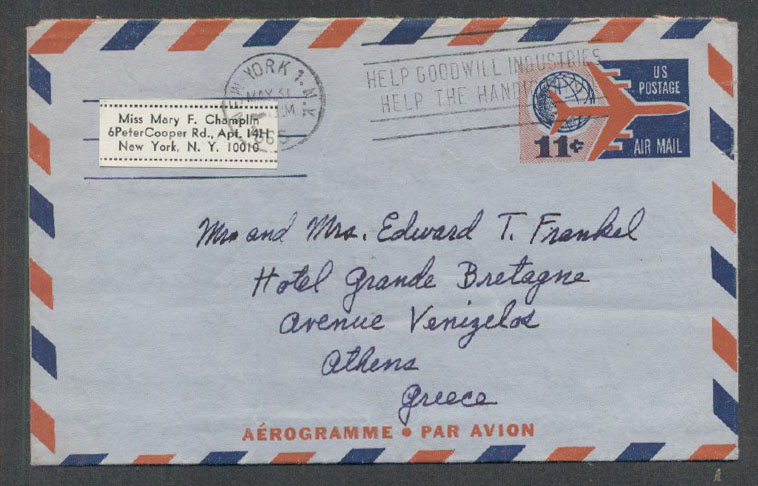 NEW YORK 1. N.Y.
MAY 31
PM
1965
HELP GOODWILL INDUSTRIES
HELP THE
US
POSTAGE
11¢
AIR MAIL
Miss Mary F. Champlin
6PeterCooper Rd., Apt. 14H
New York, N. Y. 10010
Mr. and Mrs. Edward T. Frankel
Hotel Grande Bretagne
Avenue Venizelos
Athens
Greece
AÉROGRAMME • PAR AVION